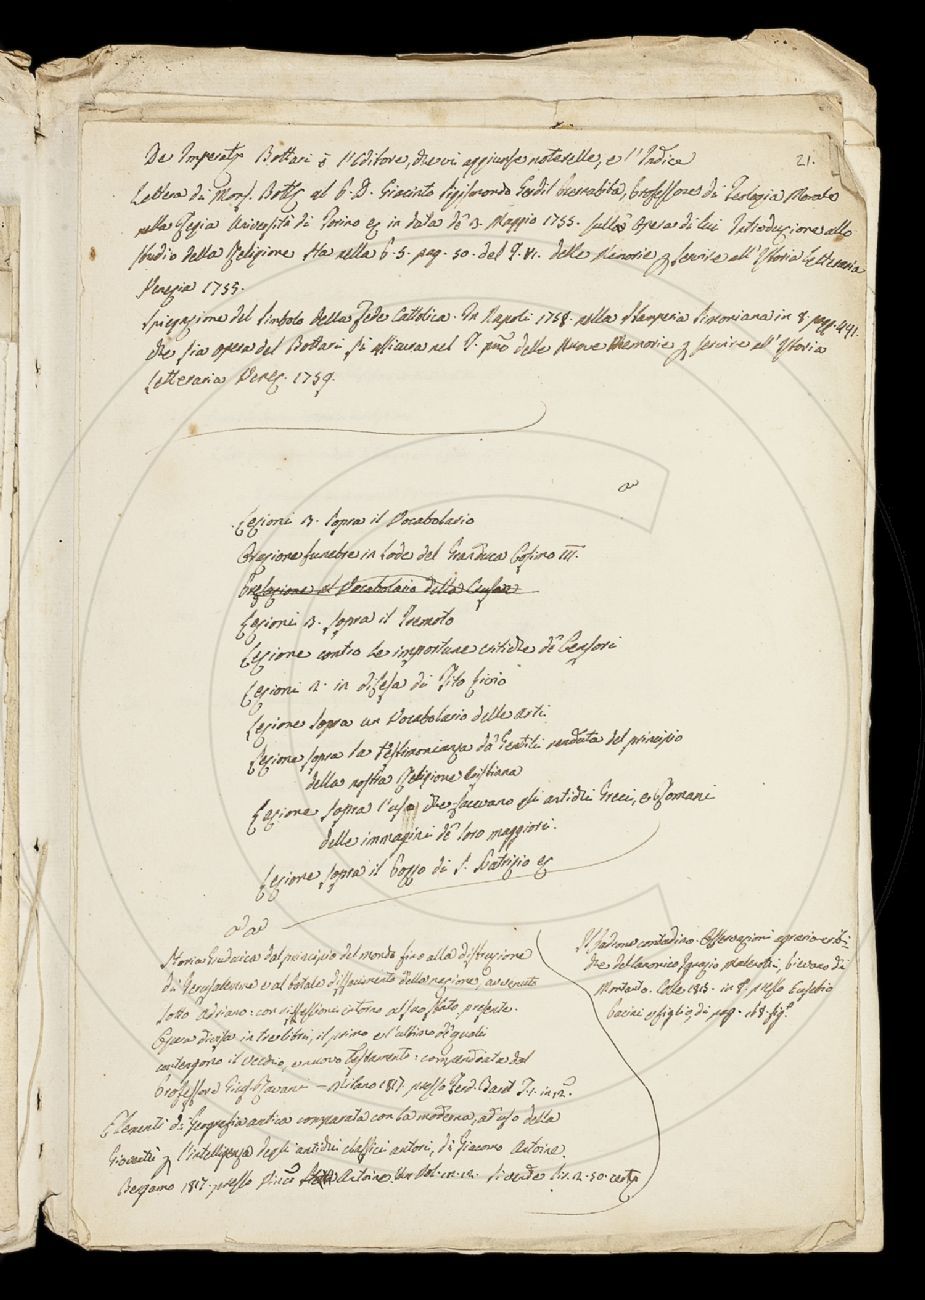 21.
De Imperatp Bottari è l'Editore, che vi aggiunse notarelle, e l'Indice
Lettera di Mons. Bottari al P. D. Giacinto Sigismondo Gerdil Barnabita, Professore di Teologia Morale
nella Regia Università di Torino in data de 3. Maggio 1755. sulle Opera di lui Introduzione allo
studio della Religione sta nella P. 5. pag. 50. del T. VI. delle Memorie p servire all'Istoria Letteraria
Venezia 1755.
Spiegazione del Simbolo della Fede Cattolica. In Napoli 1758. nella Stamperia Simoniana in 8. pagg. 441.
che sia opera del Bottari si assicura nel T. pmo delle Nuove Memorie p servire all'Istoria
Letteraria Venez. 1759.
Lezioni 3. sopra il Vocabolario
Orazione funebre in lode del Granduca Cosimo III.
Prefazione al Vocabolario della Crusca
Lezioni 3. sopra il Tremoto
Lezione contro le importune critiche de Censori
Lezioni 2. in difesa di Tito Livio
Lezione sopra un Vocabolario delle arti
Lezione sopra la testimonianza da Gentili renduta del principio
della nostra Religione Cristiana
Lezione sopra l'uso che facevano gli antichi Greci, e Romani
delle immagini de loro maggiori.
Lezione sopra il Pozzo di S. Patrizio
Storia Giudaica dal principio del mondo fino alla distruzione
di Gerusalemme e al totale disfacimento della nazione, avvenuto
sotto Adriano: con riflessioni intorno al suo stato presente.
Opera divisa in tre libri, il primo e l'ultimo de quali
contengono il vecchio, e nuovo Testamento: compendiata dal
Professore Gius. Ravani - Milano 1817. presso Ferd. Baret T. 1. in 12.
Elementi di Geografia antica comparata con la moderna, ad uso della
Gioventù p l'intelligenza degli antichi classici autori, di Giacomo Antoine.
Bergamo 1817. presso Antoine. Un Vol. in 12. si vende Lir. 2. 50. cent.
Il padrone contadino. Osservazioni agrario-criti-
che del Canonico Ignazio Malenotti, Pievano di
Montauto. Colle 1815. in 8. presso Eusebio
Pacini e figlio di pag. 168. fig.